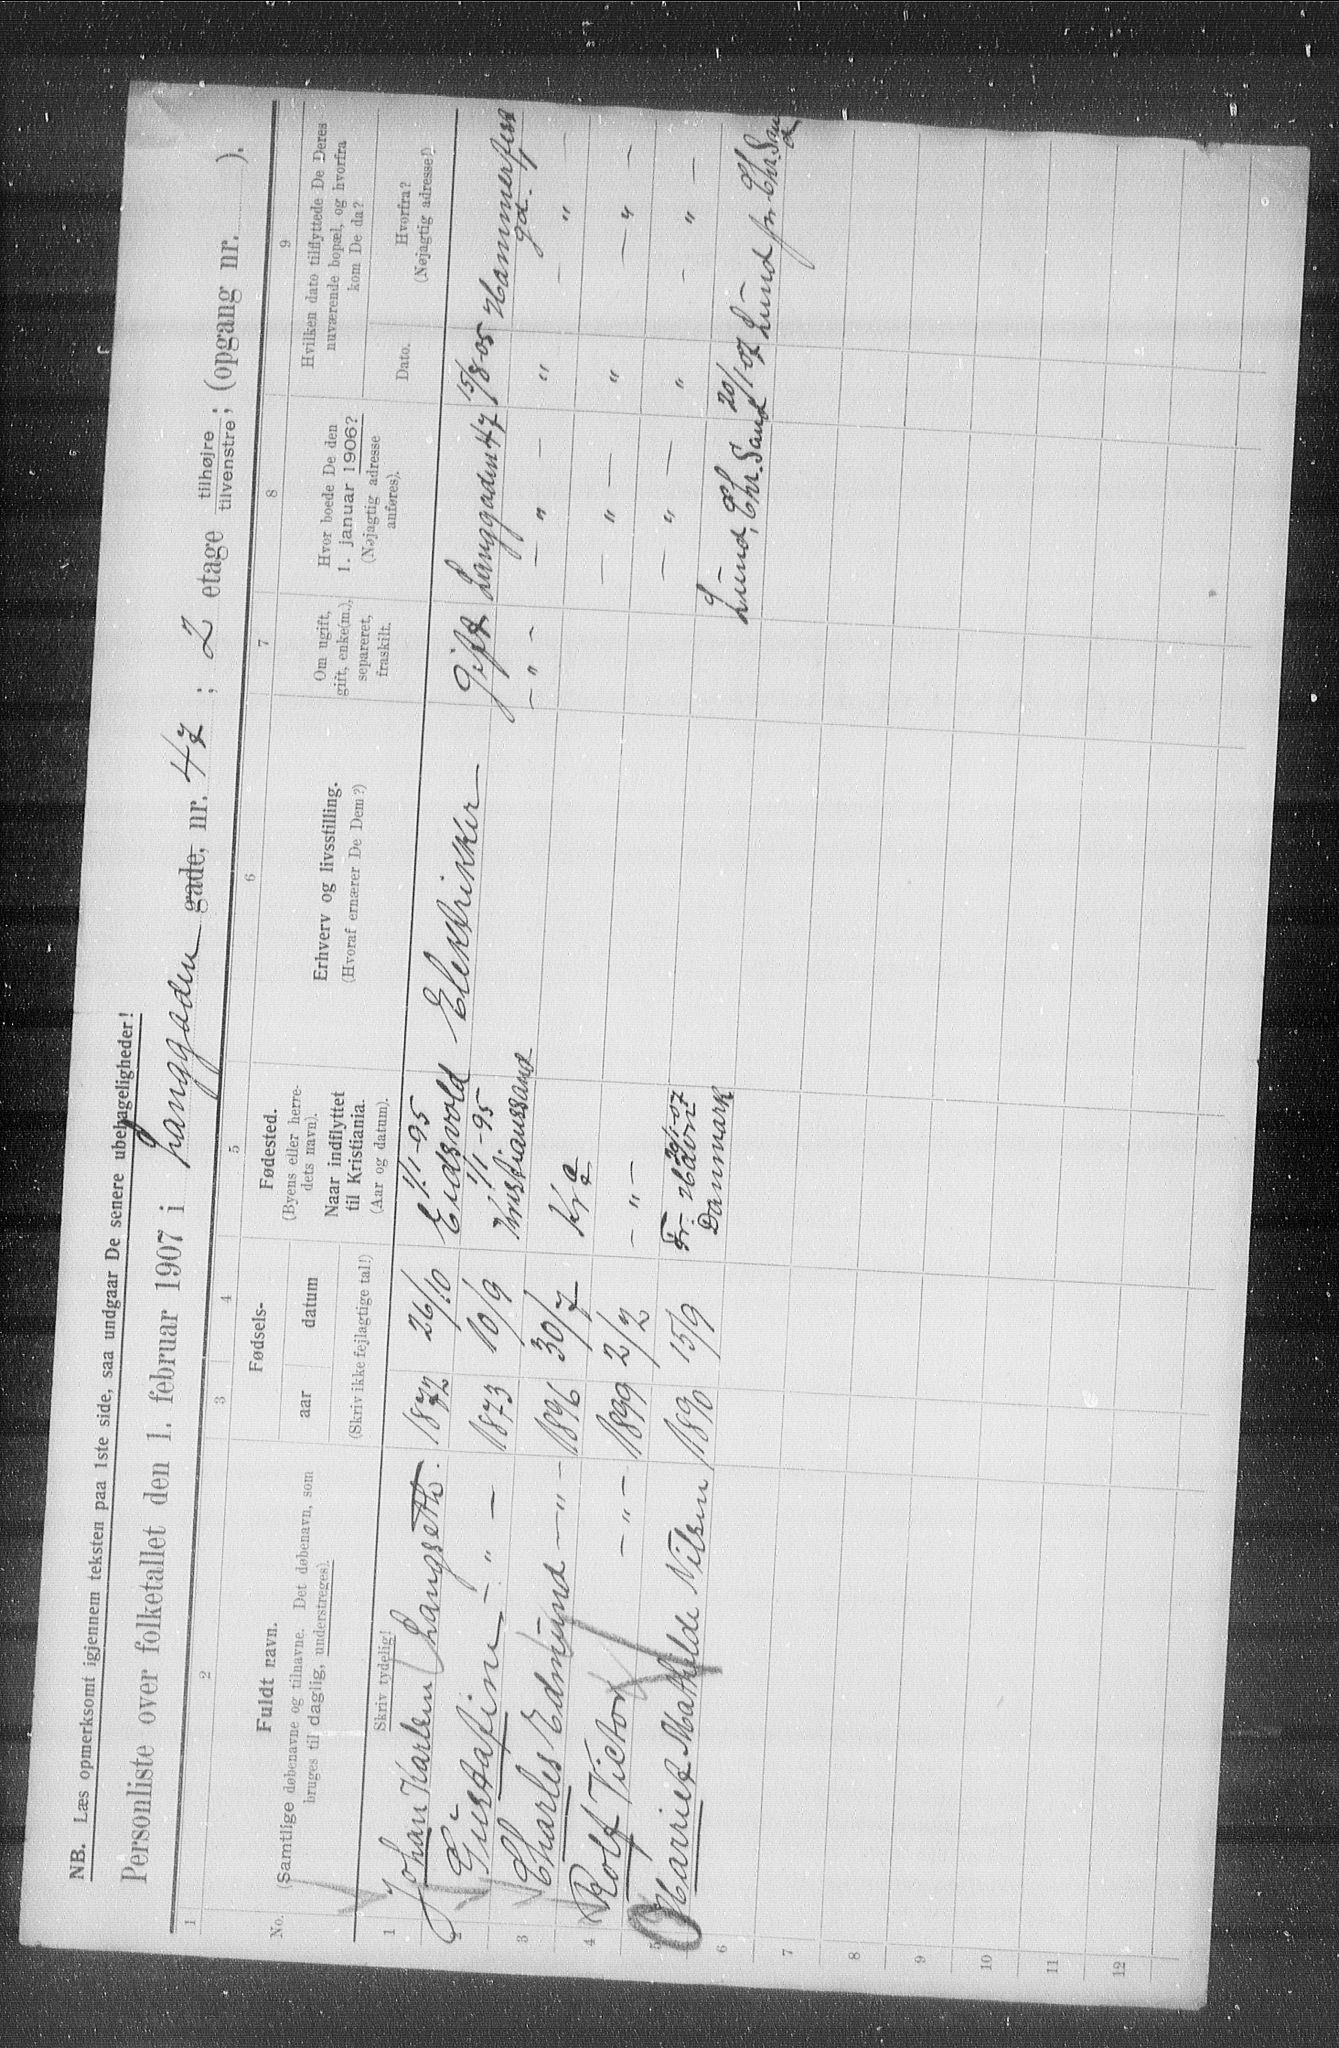 NB. Læs opmerksomt igjennem teksten paa 1ste side, saa undgaar De senere ubehageligheder!
Personliste over folketallet den 1. februar 1907 i Langgaden gade, nr. 47; 2 etage tilhøjre tilvenstre; (opgang nr. ).
1 2 3 4 5 6 7 8 9
No.
Fuldt navn.
(Samtlige døbenavne og tilnavne. Det døbenavn, som
bruges til daglig, understreges).
Skriv tydelig!
Fødsels-
aar datum
(Skriv ikke fejlagtige tal!)
Fødested.
(Byens eller herre-
dets navn).
Naar indflyttet
til Kristiania.
(Aar og datum).
Erhverv og livsstilling.
(Hvoraf ernærer De Dem?)
Om ugift,
gift, enke(m.),
separeret,
fraskilt.
Hvor boede De den
1. januar 1906?
(Nøjagtig adresse
anføres).
Hvilken dato tilflyttede De Deres
nuværende bopæl, og hvorfra
kom De da?
Dato.
Hvorfra?
(Nøjagtig adresse!)
1 Johan Karlsen Langseth. 1872 26/10 1/1-95 Eidsvold Elektrikker gift Langgaden 47 15/8-05 Hammerfest gd.
2 Gustafine - " - 1873 10/9 1/1-95 Kristianssand - " - - " - " - " -
3 Charles Edmund - " - 1896 30/7 Kra - " - " - " -
4 Rolf Victor - " - 1899 2/2 - " - - " - " - " -
5 Harriet Mathilde Nilsen 1890 15/9 Fr. 20/1-07 Danmark Lund, Chr. Sand 20/1-07 Lund pr Chr. Sand
6
7
8
9
10
11
12